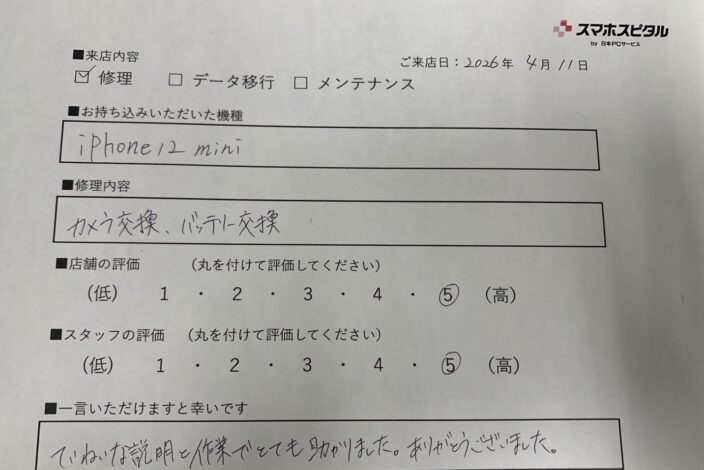 スマホスピタル
by 日本PCサービス
■来店内容
ご来店日：2026年 4月 11日
☑ 修理 □ データ移行 □ メンテナンス
■お持ち込みいただいた機種
iPhone12 mini
■修理内容
カメラ交換、バッテリー交換
■店舗の評価 （丸を付けて評価してください）
（低） 1 ・ 2 ・ 3 ・ 4 ・ ⑤ （高）
■スタッフの評価 （丸を付けて評価してください）
（低） 1 ・ 2 ・ 3 ・ 4 ・ ⑤ （高）
■一言いただけますと幸いです
ていねいな説明と作業でとても助かりました。ありがとうございました。